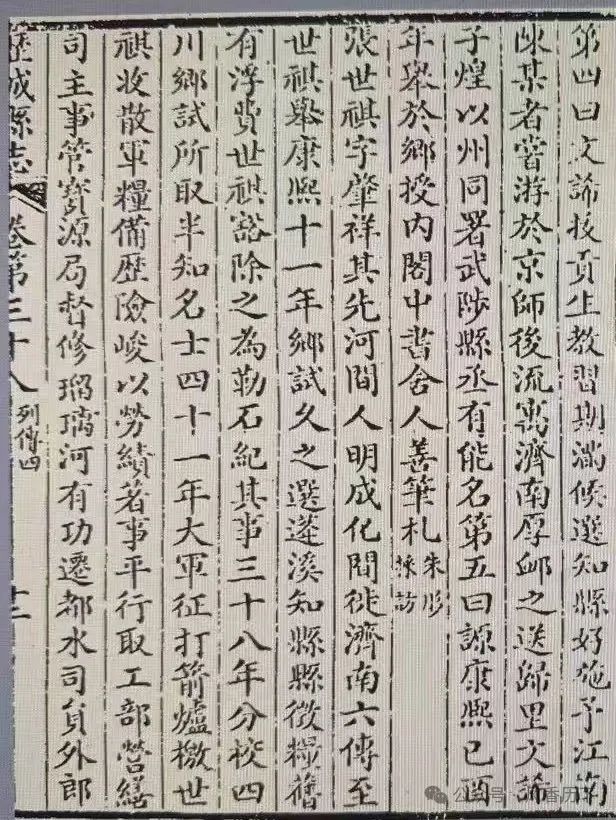 第四曰文諦拔貢生教習期滿候選知縣好施予江南
陳某者嘗游於京師後流寓濟南厚䘏之送歸里文諦
子煌以州同署武陟縣丞有能名第五曰諒康熙己酉
年舉於鄉授内閣中書舍人善筆札朱彤採訪
張世祺字肇祥其先河間人明成化間徙濟南六傳至
世祺舉康熙十一年鄉試久之選蓬溪知縣縣徵糧舊
有浮費世祺豁除之為勒石紀其事三十八年分校四
川鄉試所取半知名士四十一年大軍征打箭爐檄世
祺收散軍糧備歴險峻以勞績著事平行取工部營繕
司主事管寶源局督修琉璃河有功遷都水司員外郎
歷城縣志 卷第三十八 列傳四
公众号